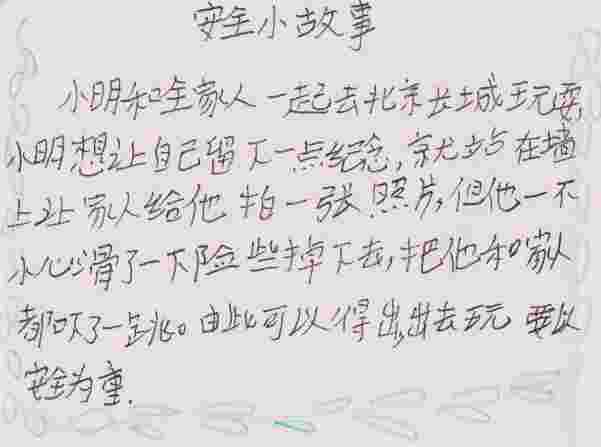 安全小故事
小明和全家人一起去北京长城玩耍,
小明想让自己留下一点纪念,就站在墙
上让家人给他拍一张照片,但他一不
小心滑了一下险些掉下去,把他和家人
都吓了一跳。由此可以得出,出去玩要以
安全为重.